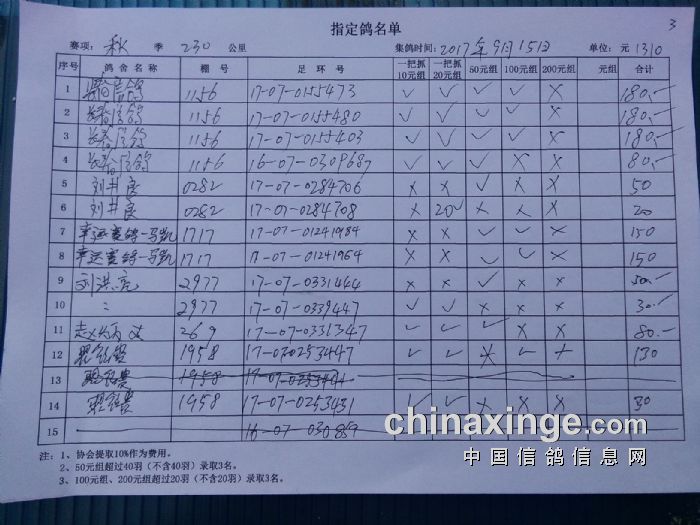 指定鸽名单
3
赛项: 秋 季 230 公里 集鸽时间: 2017年9月15日 单位: 元 1310
序号 鸽舍名称 棚号 足环号 一把抓10元组 一把抓20元组 50元组 100元组 200元组 元组 合计
1 1156 17-07-0155473 ✓ ✓ ✓ ✓ × 180.-
2 1156 17-07-0155480 ✓ ✓ ✓ ✓ × 180.-
3 1156 17-07-0155403 ✓ ✓ ✓ ✓ × 180.-
4 1156 16-07-0309687 ✓ ✓ ✓ × × 80.-
5 刘井良 0282 17-07-0284706 × × ✓ × × 50
6 刘井良 0282 17-07-0284708 × 20✓ × × × 20
7 幸运赛鸽-马凯 1717 17-07-01241984 × × ✓ ✓ × 150
8 幸运赛鸽-马凯 1717 17-07-01241964 × × ✓ ✓ × 150
9 刘洪亮 2977 17-07-0331444 × × ✓ × × 50.-
10 2977 17-07-0339447 ✓ ✓ × × × 30.-
11 269 17-07-0331347 ✓ ✓ ✓ × × 80.-
12 1958 17-070253447 ✓ ✓ × ✓ × 130
13 1958 17-07-0253441
14 1958 17-07-0253431 ✓ ✓ × × × 30
15 16-07-030889
注: 1、协会提取10%作为费用。
2、50元组超过40羽（不含40羽）录取3名。
3、100元组、200元组超过20羽（不含20羽）录取3名。
chinaxinge.com
中国信鸽信息网